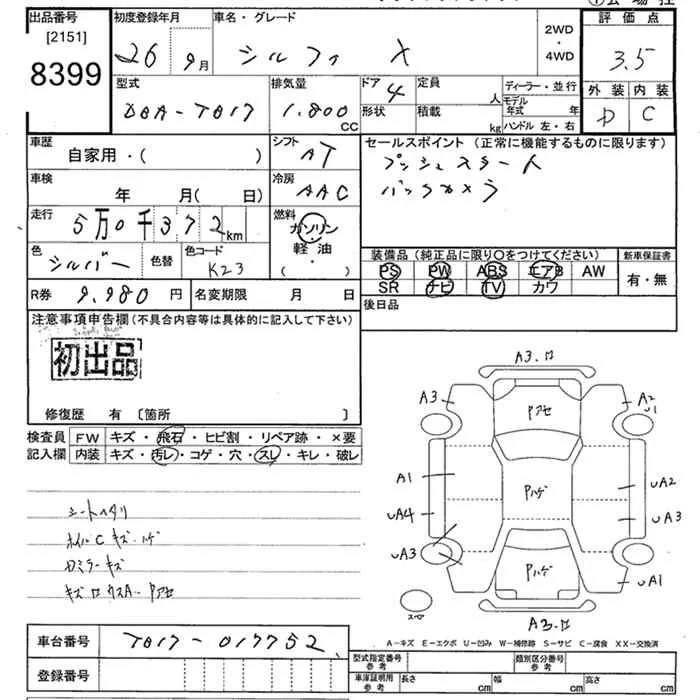 出品番号 初度登録年月 車名・グレード 評価点
[2151]
8399
26 9月 シルフィ X 2WD・4WD 3.5
型式 排気量 ドア 4 定員 人 ディーラー・並行 外装 内装
DBA-TB17 1.800 CC 形状 積載 kg モデル年式 年 D C
ハンドル 左・右
車歴 シフト セールスポイント (正常に機能するものに限ります)
自家用・( ) AT プッシュスタート
車検 冷房 バックカメラ
年 月( 日) AAC
走行 燃料
5万0千372km ガソリン・軽油・( )
色 色替 色コード 装備品 (純正品に限り○をつけてください) 新車保証書
シルバー K23 PS PW ABS エアB AW 有・無
SR ナビ TV カワ
R券 9.980 円 名変期限 月 日 後日品
注意事項申告欄 (不具合内容等は具体的に記入して下さい)
初出品
修復歴 有 〔箇所 〕
検査員 FW キズ・飛石・ヒビ割・リペア跡・×要
記入欄 内装 キズ・汚レ・コゲ・穴・スレ・キレ・破レ
シートヘタリ
ホイルCキズ・ハゲ
ロミラーキズ
A3.ロ
A3 Pアセ A2
U1
A1 Pハゲ UA2
UA4 UA3
UA3 Pハゲ UA1
スペア A3.ロ
A-キズ E-エクボ U-凹み W-補修跡 S-サビ C-腐食 XX-交換済
車台番号 TB17-017752 型式指定番号 参考 類別区分番号 参考
登録番号 車庫証明用 参考 長さ cm 幅 cm 高さ cm